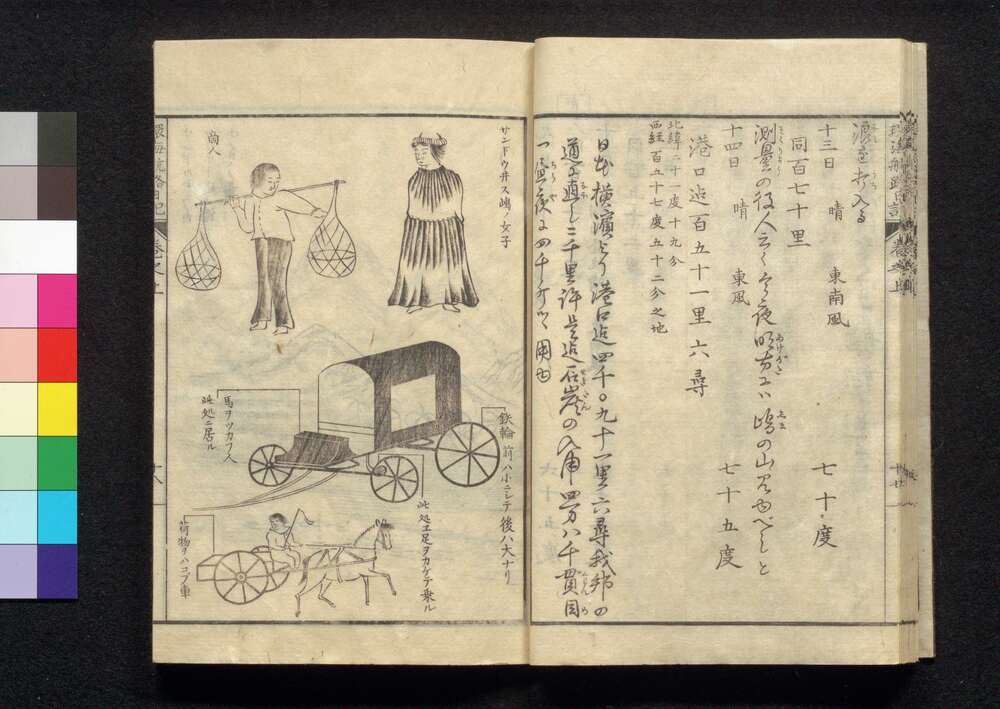 浪を打入る
十三日　晴　東南風　七十度
同百七十里
測量の役人云く今夜明方には嶋の山見ゆべしと
十四日　晴　東風　七十五度
港口迄百五十一里六尋
北緯二十一度十九分
西経百五十七度五十二分之地
日本横濱より港口迄四千〇九十一里六尋我邦の
道に直し二千里許是迄石炭の入用四万八千貫目
一昼夜に四千斤づゝ
サンドウ井ス嶋ノ女子
商人
鉄輪　前ハ小ニシテ　後ハ大ナリ
馬ヲツカフ人
此処ニ居ル
此処エ足ヲカケテ乗ル
荷物ヲハコブ車